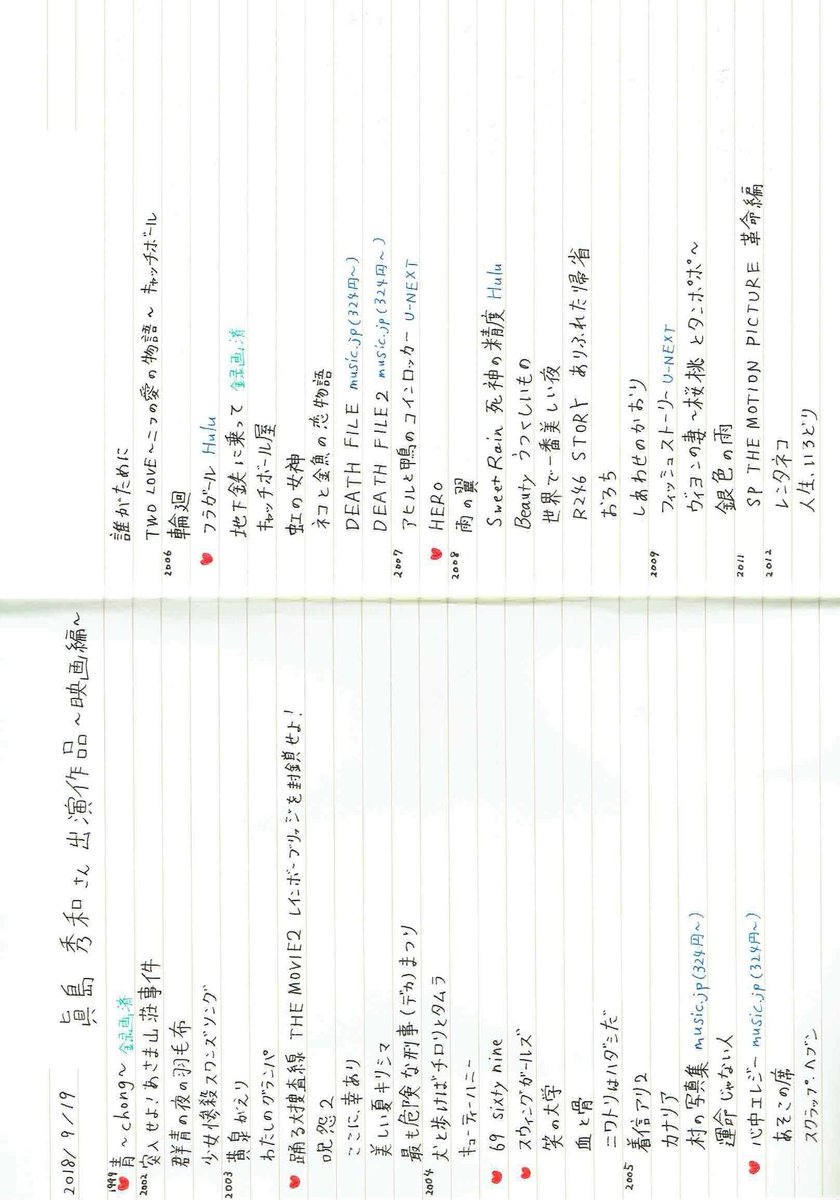 2018/9/19
眞島 秀和さん 出演作品 ~映画編~
1999 ♥ 青 ~chong~ 録画済
2002 突入せよ!あさま山荘事件
群青の夜の羽毛布
少女惨殺スワンズソング
2003 黄泉がえり
わたしのグランパ
♥ 踊る大捜査線 THE MOVIE2 レインボーブリッジを封鎖せよ!
呪怨2
ここに、幸あり
美しい夏キリシマ
最も危険な刑事(デカ)まつり
2004 犬と歩けば チロリとタムラ
キューティーハニー
♥ 69 sixty nine
♥ スウィングガールズ
笑の大学
血と骨
ニワトリはハダシだ
2005 着信アリ2
カナリア
村の写真集 music.jp(324円~)
運命じゃない人
♥ 心中エレジー music.jp(324円~)
あそこの席
スクラップ・ヘブン
誰がために
TWO LOVE~二つの愛の物語~ キャッチボール
2006 輪廻
♥ フラガール Hulu
地下鉄に乗って 録画済
キャッチボール屋
虹の女神
ネコと金魚の恋物語
DEATH FILE music.jp(324円~)
DEATH FILE2 music.jp(324円~)
2007 アヒルと鴨のコインロッカー U-NEXT
♥ HERO
2008 雨の翼
Sweet Rain 死神の精度 Hulu
Beauty うつくしいもの
世界で一番美しい夜
R246 STORY ありふれた帰省
おろち
しあわせのかおり
2009 フィッシュストーリー U-NEXT
ヴィヨンの妻~桜桃とタンポポ~
銀色の雨
2011 SP THE MOTION PICTURE 革命編
2012 レンタネコ
人生、いろどり